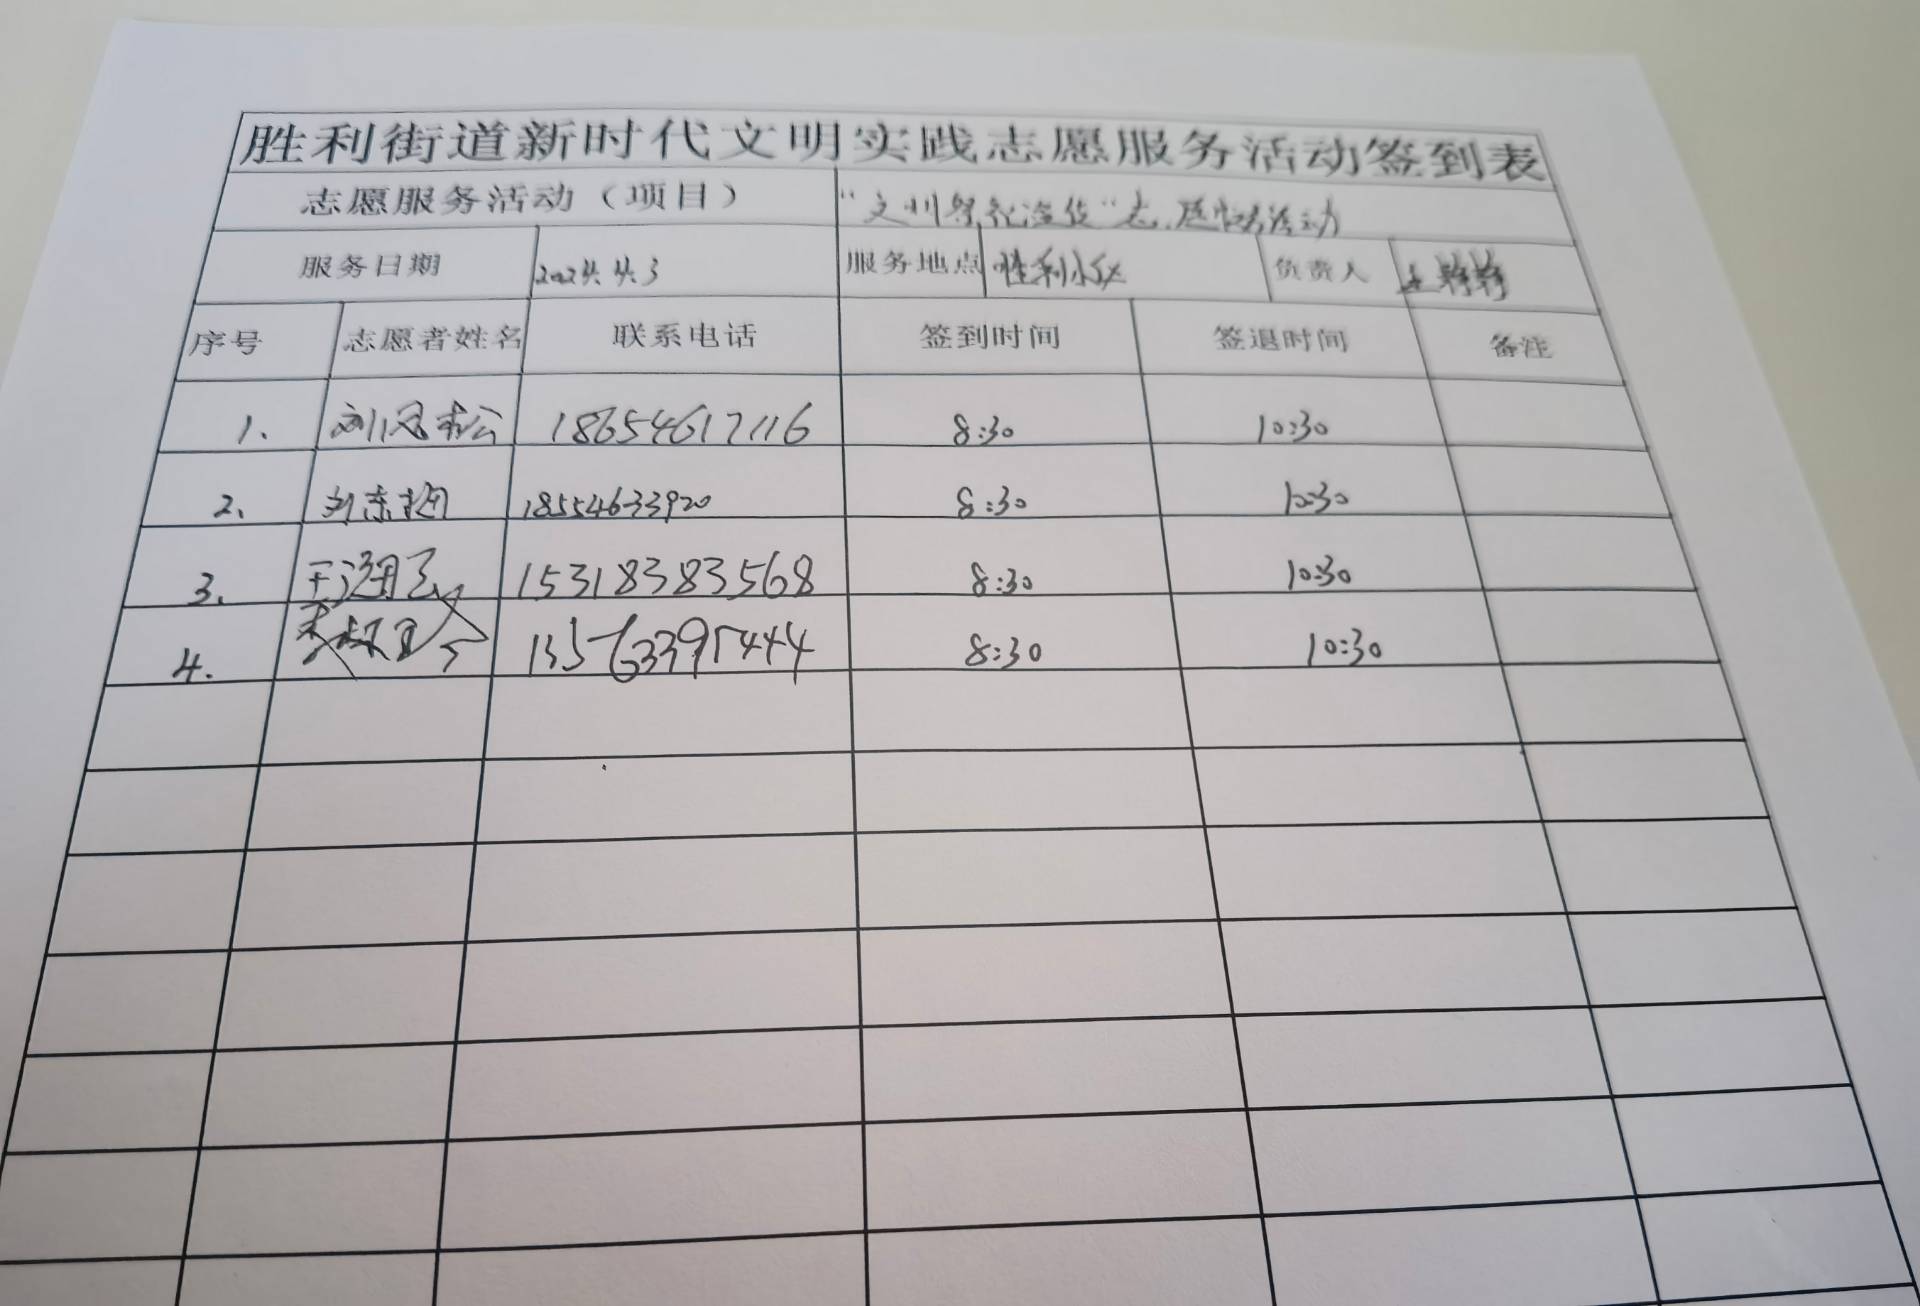 胜利街道新时代文明实践志愿服务活动签到表
志愿服务活动（项目） “文明祭祀宣传”志愿服务活动
服务日期 2024.4.3 服务地点 胜利小区 负责人
序号 志愿者姓名 联系电话 签到时间 签退时间 备注
1. 刘冠松 18654617116 8:30 10:30
2. 刘东梅 18554633920 8:30 10:30
3. 15318383568 8:30 10:30
4. 13563395444 8:30 10:30